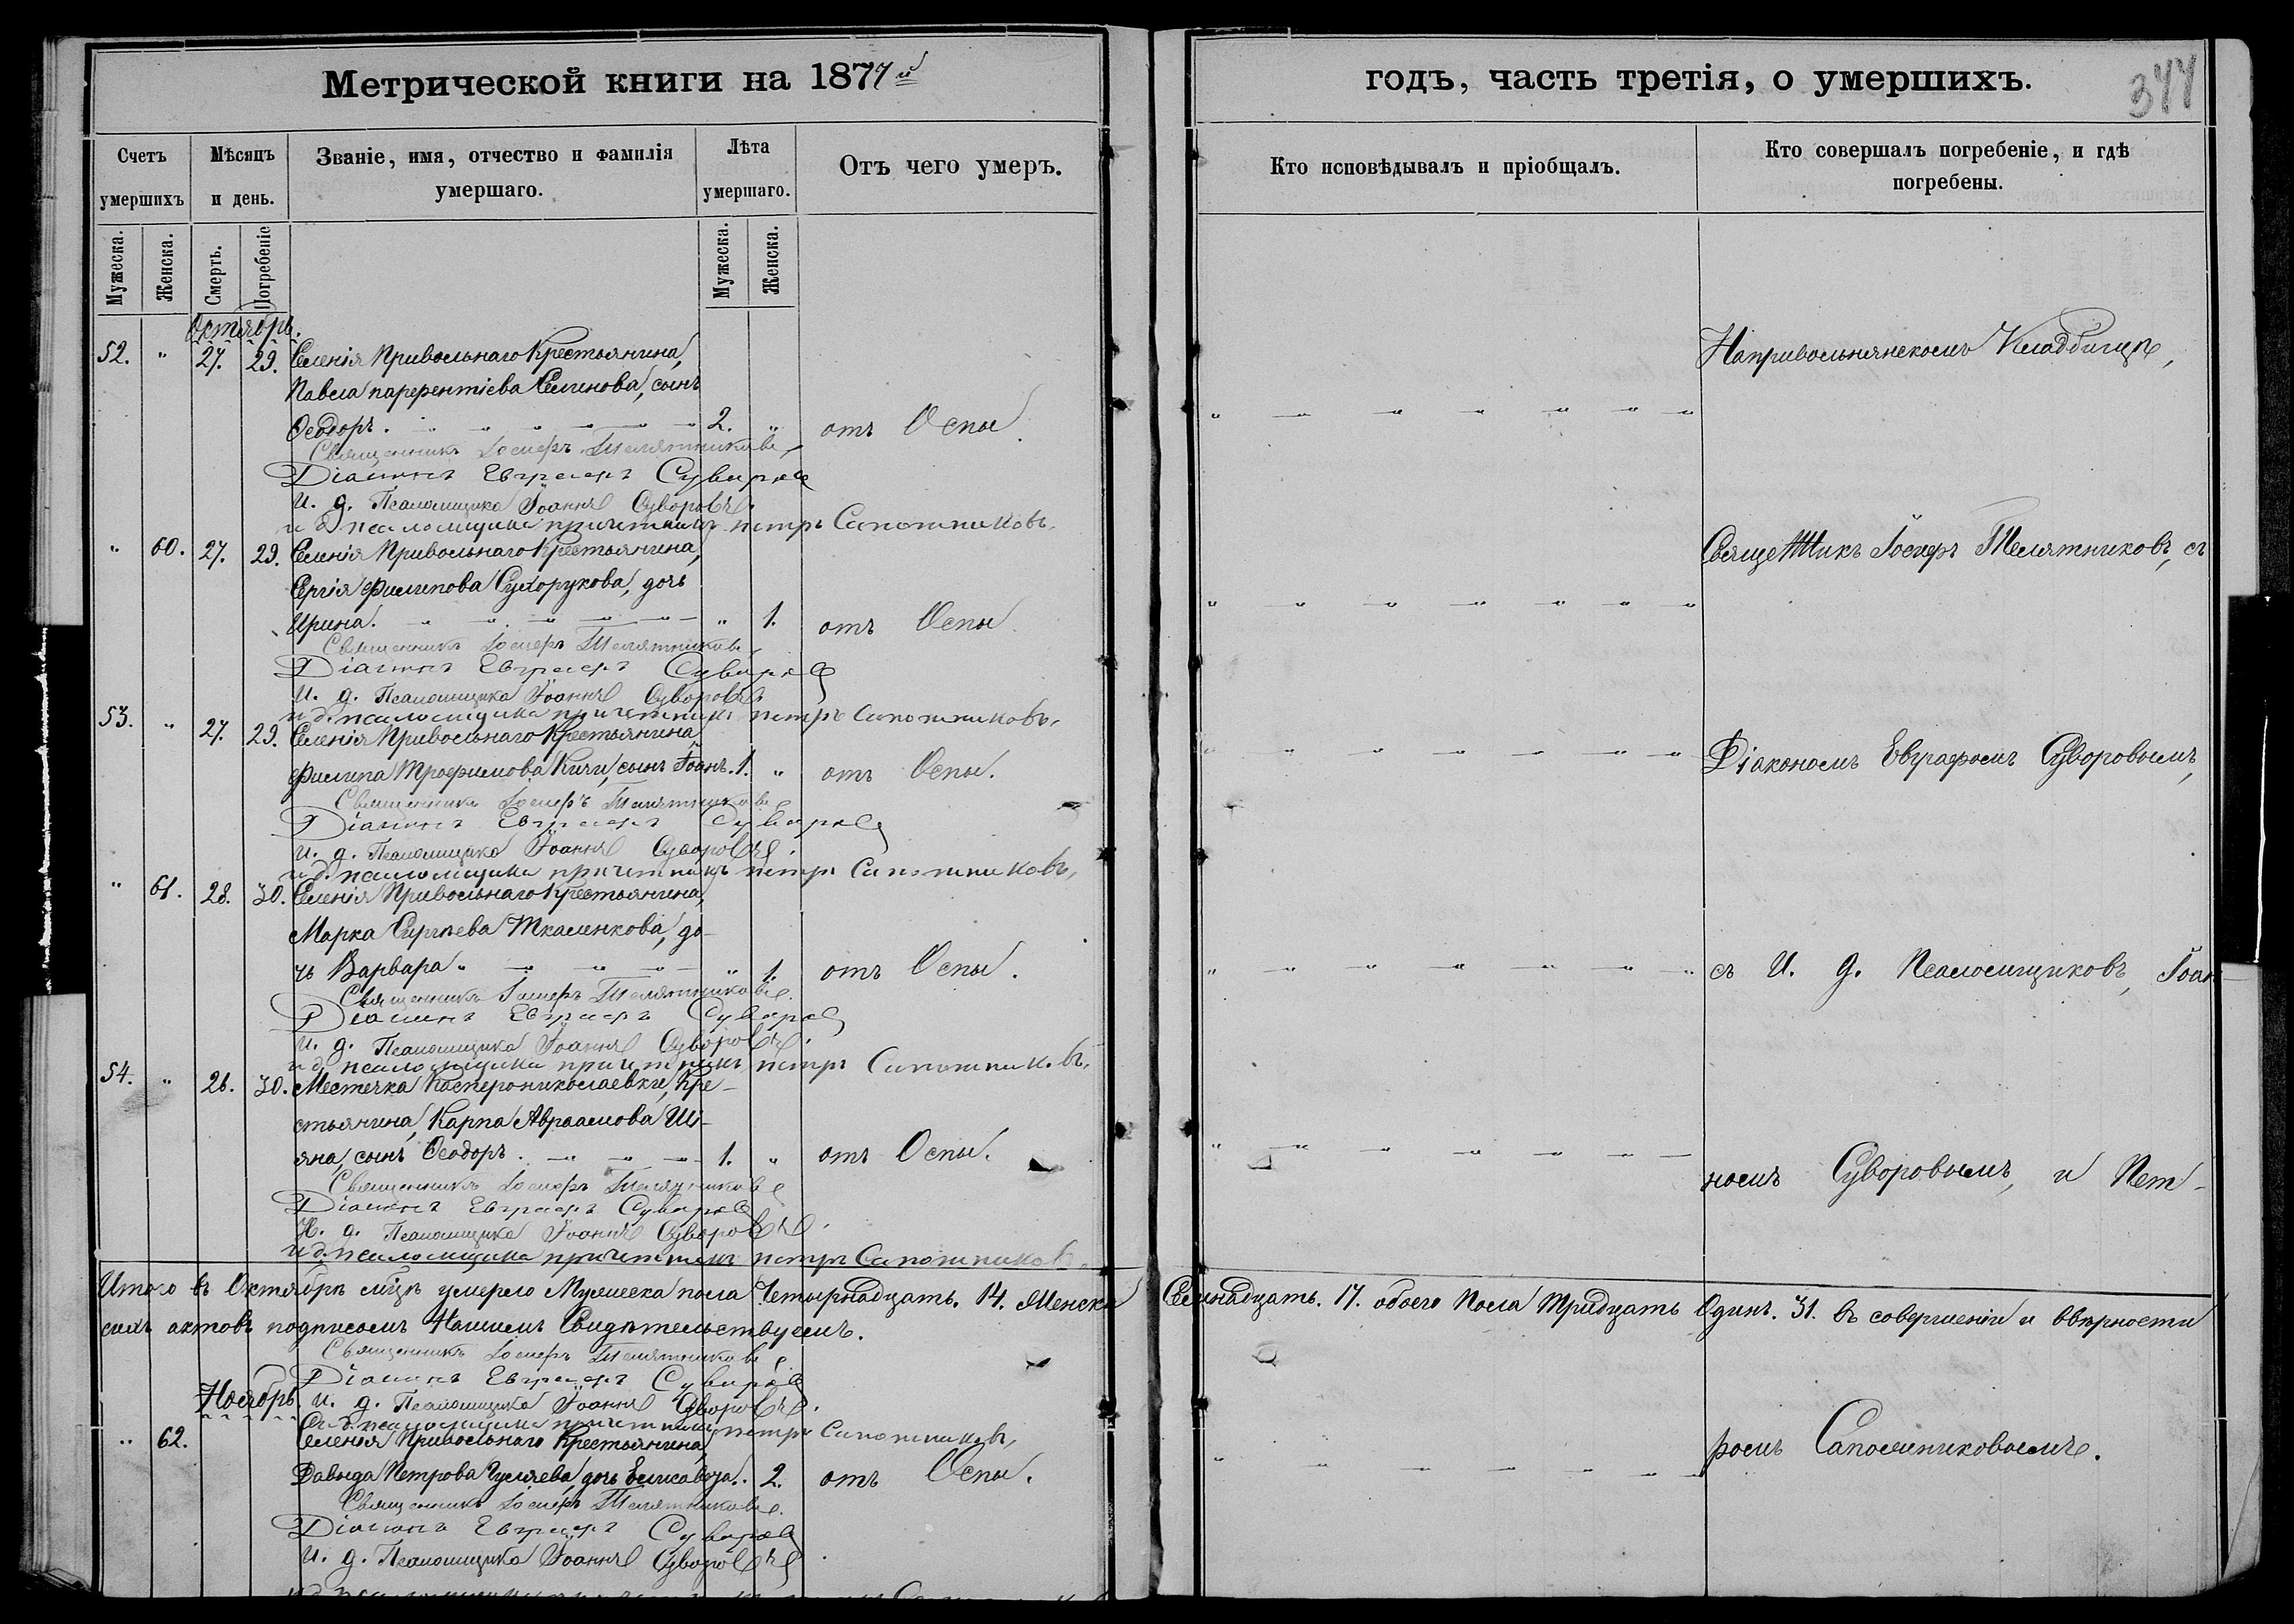 Метрической книги на 1877й
годъ, часть третія, о умершихъ.
344
Счетъ умершихъ
Мѣсяцъ и день.
Званіе, имя, отчество и фамилія умершаго.
Лѣта умершаго.
Отъ чего умеръ.
Кто исповѣдывалъ и пріобщалъ.
Кто совершалъ погребеніе, и гдѣ погребены.
Мужеска.
Женска.
Смерть.
Погребеніе
Мужеска.
Женска.
Октябрь.
52. " 27. 29. Селенія Привольнаго Крестьянина,
Павла Парфентіева Селинова, сынъ
Ѳеодоръ. 2. " отъ Оспы.
Священникъ Іосифъ Телятниковъ
Діаконъ Евграфъ Суворовъ
И. д. Псаломщика Іоаннъ Суворовъ.
и д. псаломщика причетникъ петръ Сапожниковъ.
" 60. 27. 29. Селенія Привольнаго Крестьянина,
Сергія Филипова Сухорукова, дочь
Ирина. " 1. отъ Оспы.
Священникъ Іосифъ Телятниковъ
Діаконъ Евграфъ Суворовъ
И. д. Псаломщика Іоаннъ Суворовъ
и д. псаломщика причетникъ петръ Сапожниковъ.
53. " 27. 29. Селенія Привольнаго Крестьянина
Филипа Трофимова Кичи, сынъ Іоанъ. 1. " отъ Оспы.
Священникъ Іосифъ Телятниковъ
Діаконъ Евграфъ Суворовъ
И. д. Псаломщика Іоаннъ Суворовъ.
и д. псаломщика причетникъ петръ Сапожниковъ,
" 61. 28. 30. Селенія Привольнаго Крестьянина,
Марка Сергѣева Ткаленкова, до-
чь Варвара. " 1. отъ Оспы.
Священникъ Іосифъ Телятниковъ.
Діаконъ Евграфъ Суворовъ
И. д. Псаломщика Іоаннъ Суворовъ.
и д. псаломщика причетникъ петръ Сапожниковъ,
54. " 28. 30. Местечка Касперониколаевки, Кре-
стьянина, Карпа Авраамова Ші-
яна, сынъ Ѳеодоръ. 1. " отъ Оспы.
Священникъ Іосифъ Телятниковъ
Діаконъ Евграфъ Суворовъ
И. д. Псаломщика Іоаннъ Суворовъ.
и д. псаломщика причетникъ петръ Сапожниковъ.
Напривольнянскомъ Кладбищѣ,
Священникъ Іосифъ Телятниковъ, съ
Діакономъ Евграфомъ Суворовымъ,
съ И. д. Псаломщиковъ, Іоан-
номъ Суворовымъ, и Пет-
ромъ Сапожниковымъ.
Итого въ Октябрѣ мцѣ умерло Мужеска пола Четырнадцать. 14. Женска Семнадцать. 17. обоего Пола Тридцать Одинъ. 31. въ совершеніи и ввѣрности
сихъ актовъ подписомъ Нашимъ Свидѣтельствуемъ.
Священникъ Іосифъ Телятниковъ.
Діаконъ Евграфъ Суворовъ
И. д. Псаломщика Іоаннъ Суворовъ.
и д. псаломщика причетникъ петръ Сапожниковъ,
Ноябрь.
" 62. Селенія Привольнаго Крестьянина,
Давыда Петрова Гуляева, дочь Елисавета. 2. отъ Оспы.
Священникъ Іосифъ Телятниковъ.
Діаконъ Евграфъ Суворовъ
И. д. Псаломщика Іоаннъ Суворовъ.